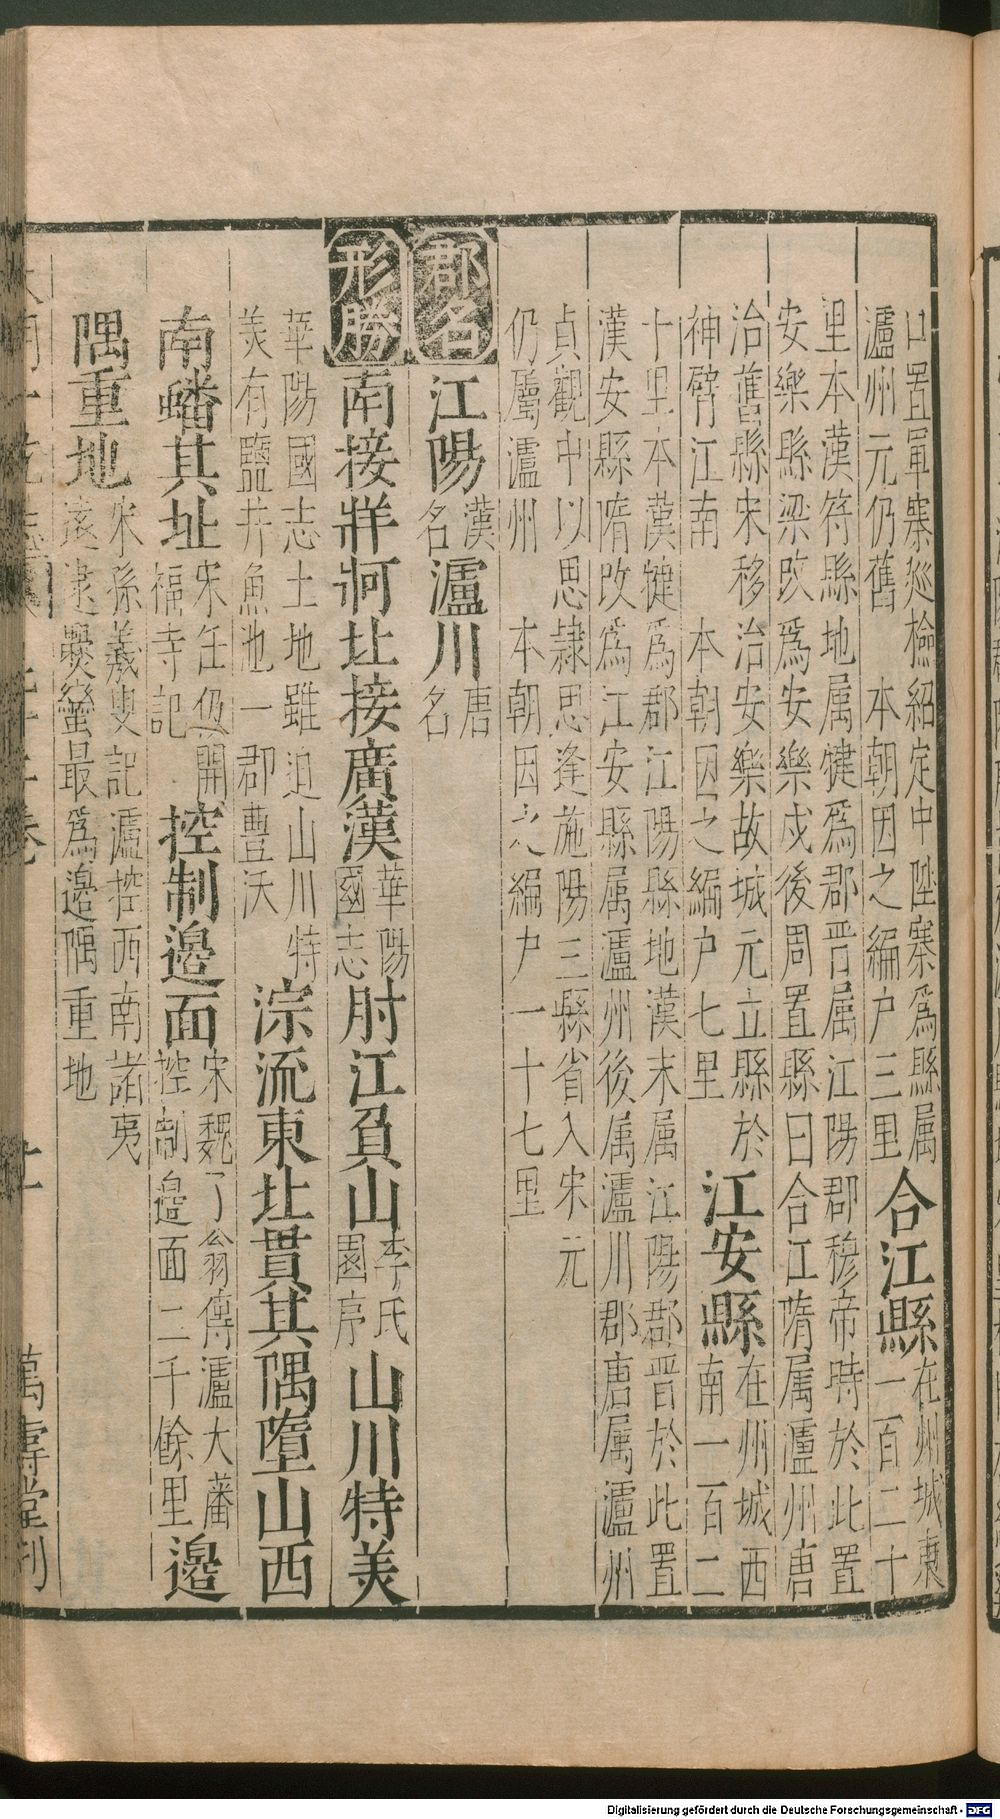 口置軍寨廵檢紹定中陞寨爲縣属
瀘州元仍舊　本朝因之編户三里
合江縣
在州城東
一百二十
里本漢符縣地属犍爲郡晋属江陽郡穆帝時於此置
安樂縣梁改爲安樂戍後周置縣曰合江隋属瀘州唐
治舊縣宋移治安樂故城元立縣於
神臂江南　本朝因之編户七里
江安縣
在州城西
南一百二
十里本漢犍爲郡江陽縣地漢末属江陽郡晋於此置
漢安縣隋改爲江安縣属瀘州後属瀘川郡唐属瀘州
貞觀中以思隷思逢施陽三縣省入宋元
仍屬瀘州　本朝因之編户一十七里
郡名
江陽
漢
名
瀘川
唐
名
形勝
南接牂牁北接廣漢
華陽
國志
肘江負山
李氏
園序
山川特美
華陽國志土地雖迫山川特
美有鹽井魚池一郡豊沃
淙流東北貫其隅墮山西
南蟠其址
宋任伋開
福寺記
控制邉面
宋魏了翁傳瀘大藩
控制邉面二千餘里
邉
隅重地
宋孫羲叟記瀘控西南諸夷
逺逮爨蠻最爲邉隅重地
萬壽堂刊
Digitalisierung gefördert durch die Deutsche Forschungsgemeinschaft - DFG